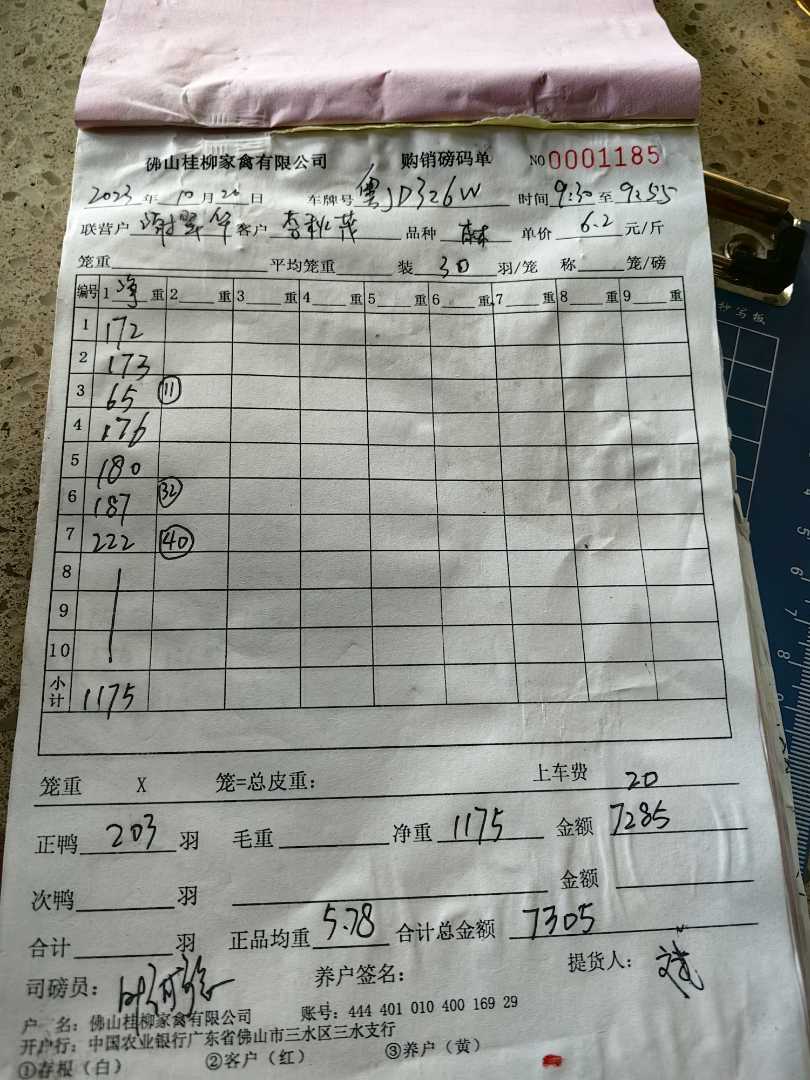 佛山桂柳家禽有限公司 购销磅码单 NO 0001185
2023 年 10 月 20 日 车牌号 粤JD326W 时间 9:30 至 9:55
联营户 谢翠华 客户 李秋茂 品种 麻 单价 6.2 元/斤
笼重 平均笼重 装 30 羽/笼 称 笼/磅
编号 1 净 重 2 重 3 重 4 重 5 重 6 重 7 重 8 重 9 重
1 172
2 173
3 65 ⑪
4 176
5 180
6 187 ㉜
7 222 ㊵
8
9
10
小计 1175
笼重 X 笼=总皮重: 上车费 20
正鸭 203 羽 毛重 净重 1175 金额 7285
次鸭 羽 金额
合计 羽 正品均重 5.78 合计总金额 7305
司磅员: 养户签名: 提货人:
户 名: 佛山桂柳家禽有限公司 账号: 444 401 010 400 169 29
开户行: 中国农业银行广东省佛山市三水区三水支行
①存根(白) ②客户(红) ③养户(黄)